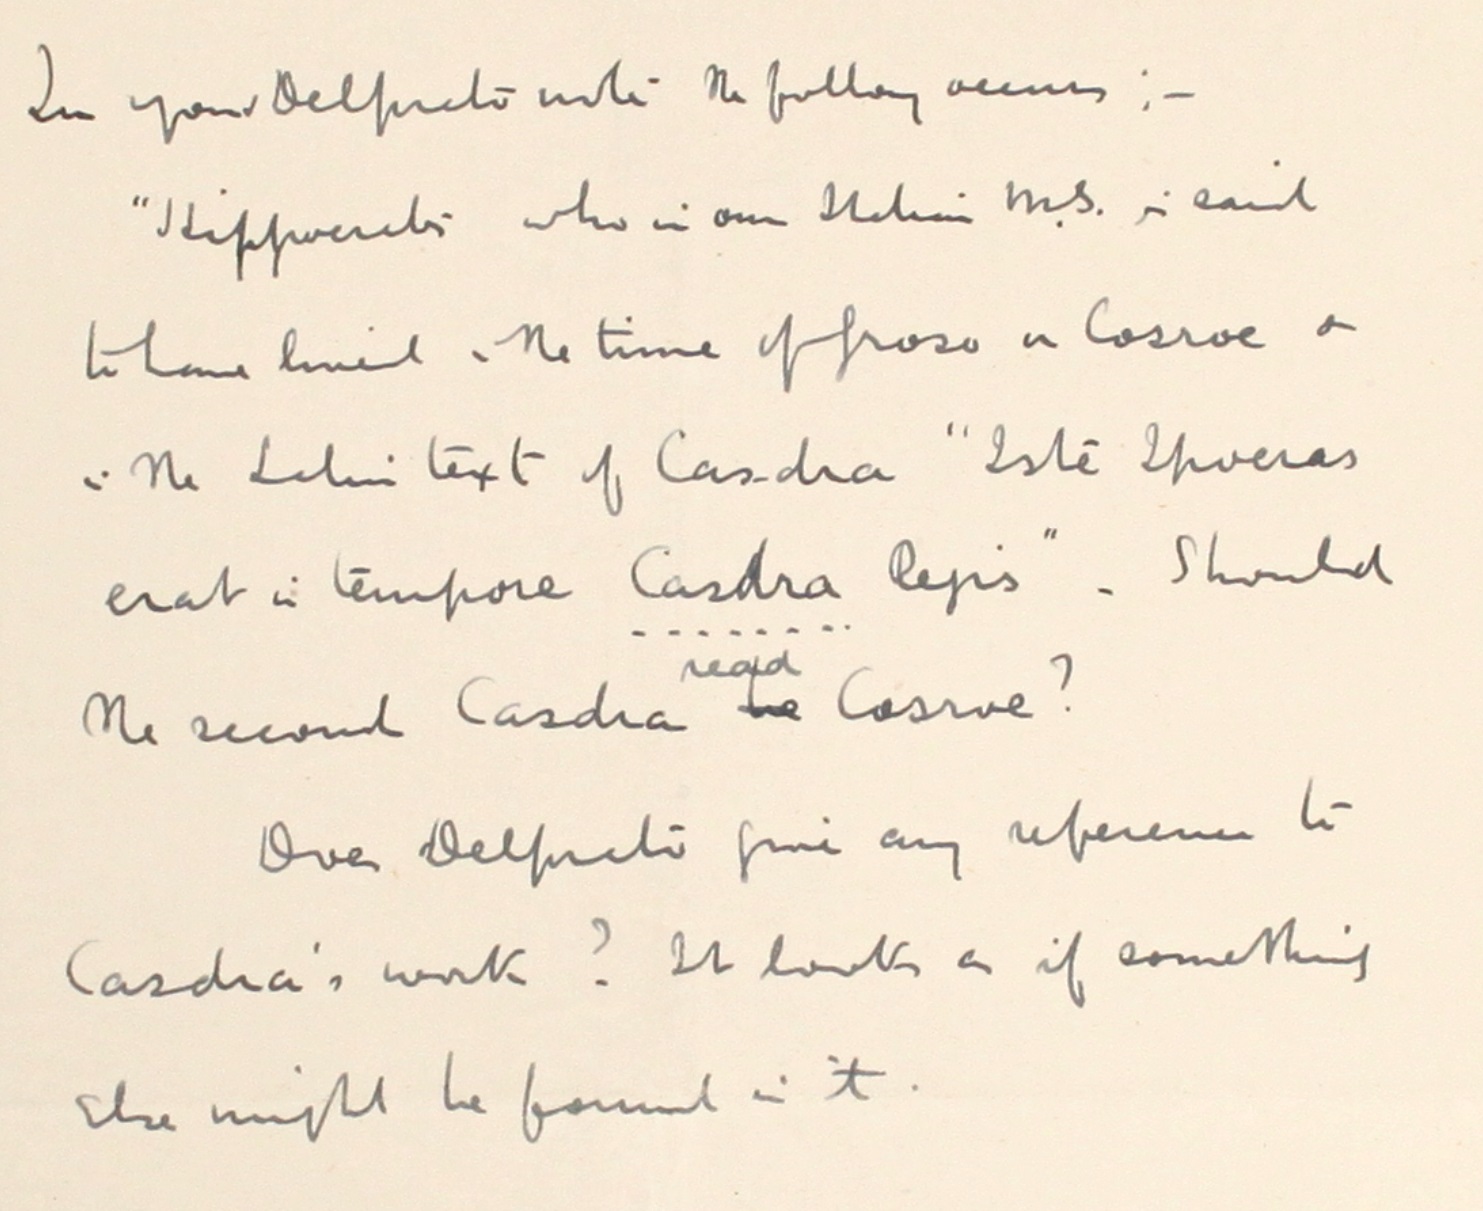 In your Delprato note the follong occurs ; –
"Hippocrates who in our Italian M.S. is said
to have lived in the time of Froso or Cosroe &
in the Latin text of Casdra "Iste Ipocras
erat in tempore Casdra Regis" . Should
the second Casdra read Cosroe?
Does Delprato give any reference to
Casdra's work ? It looks as if something
else might be found in it .